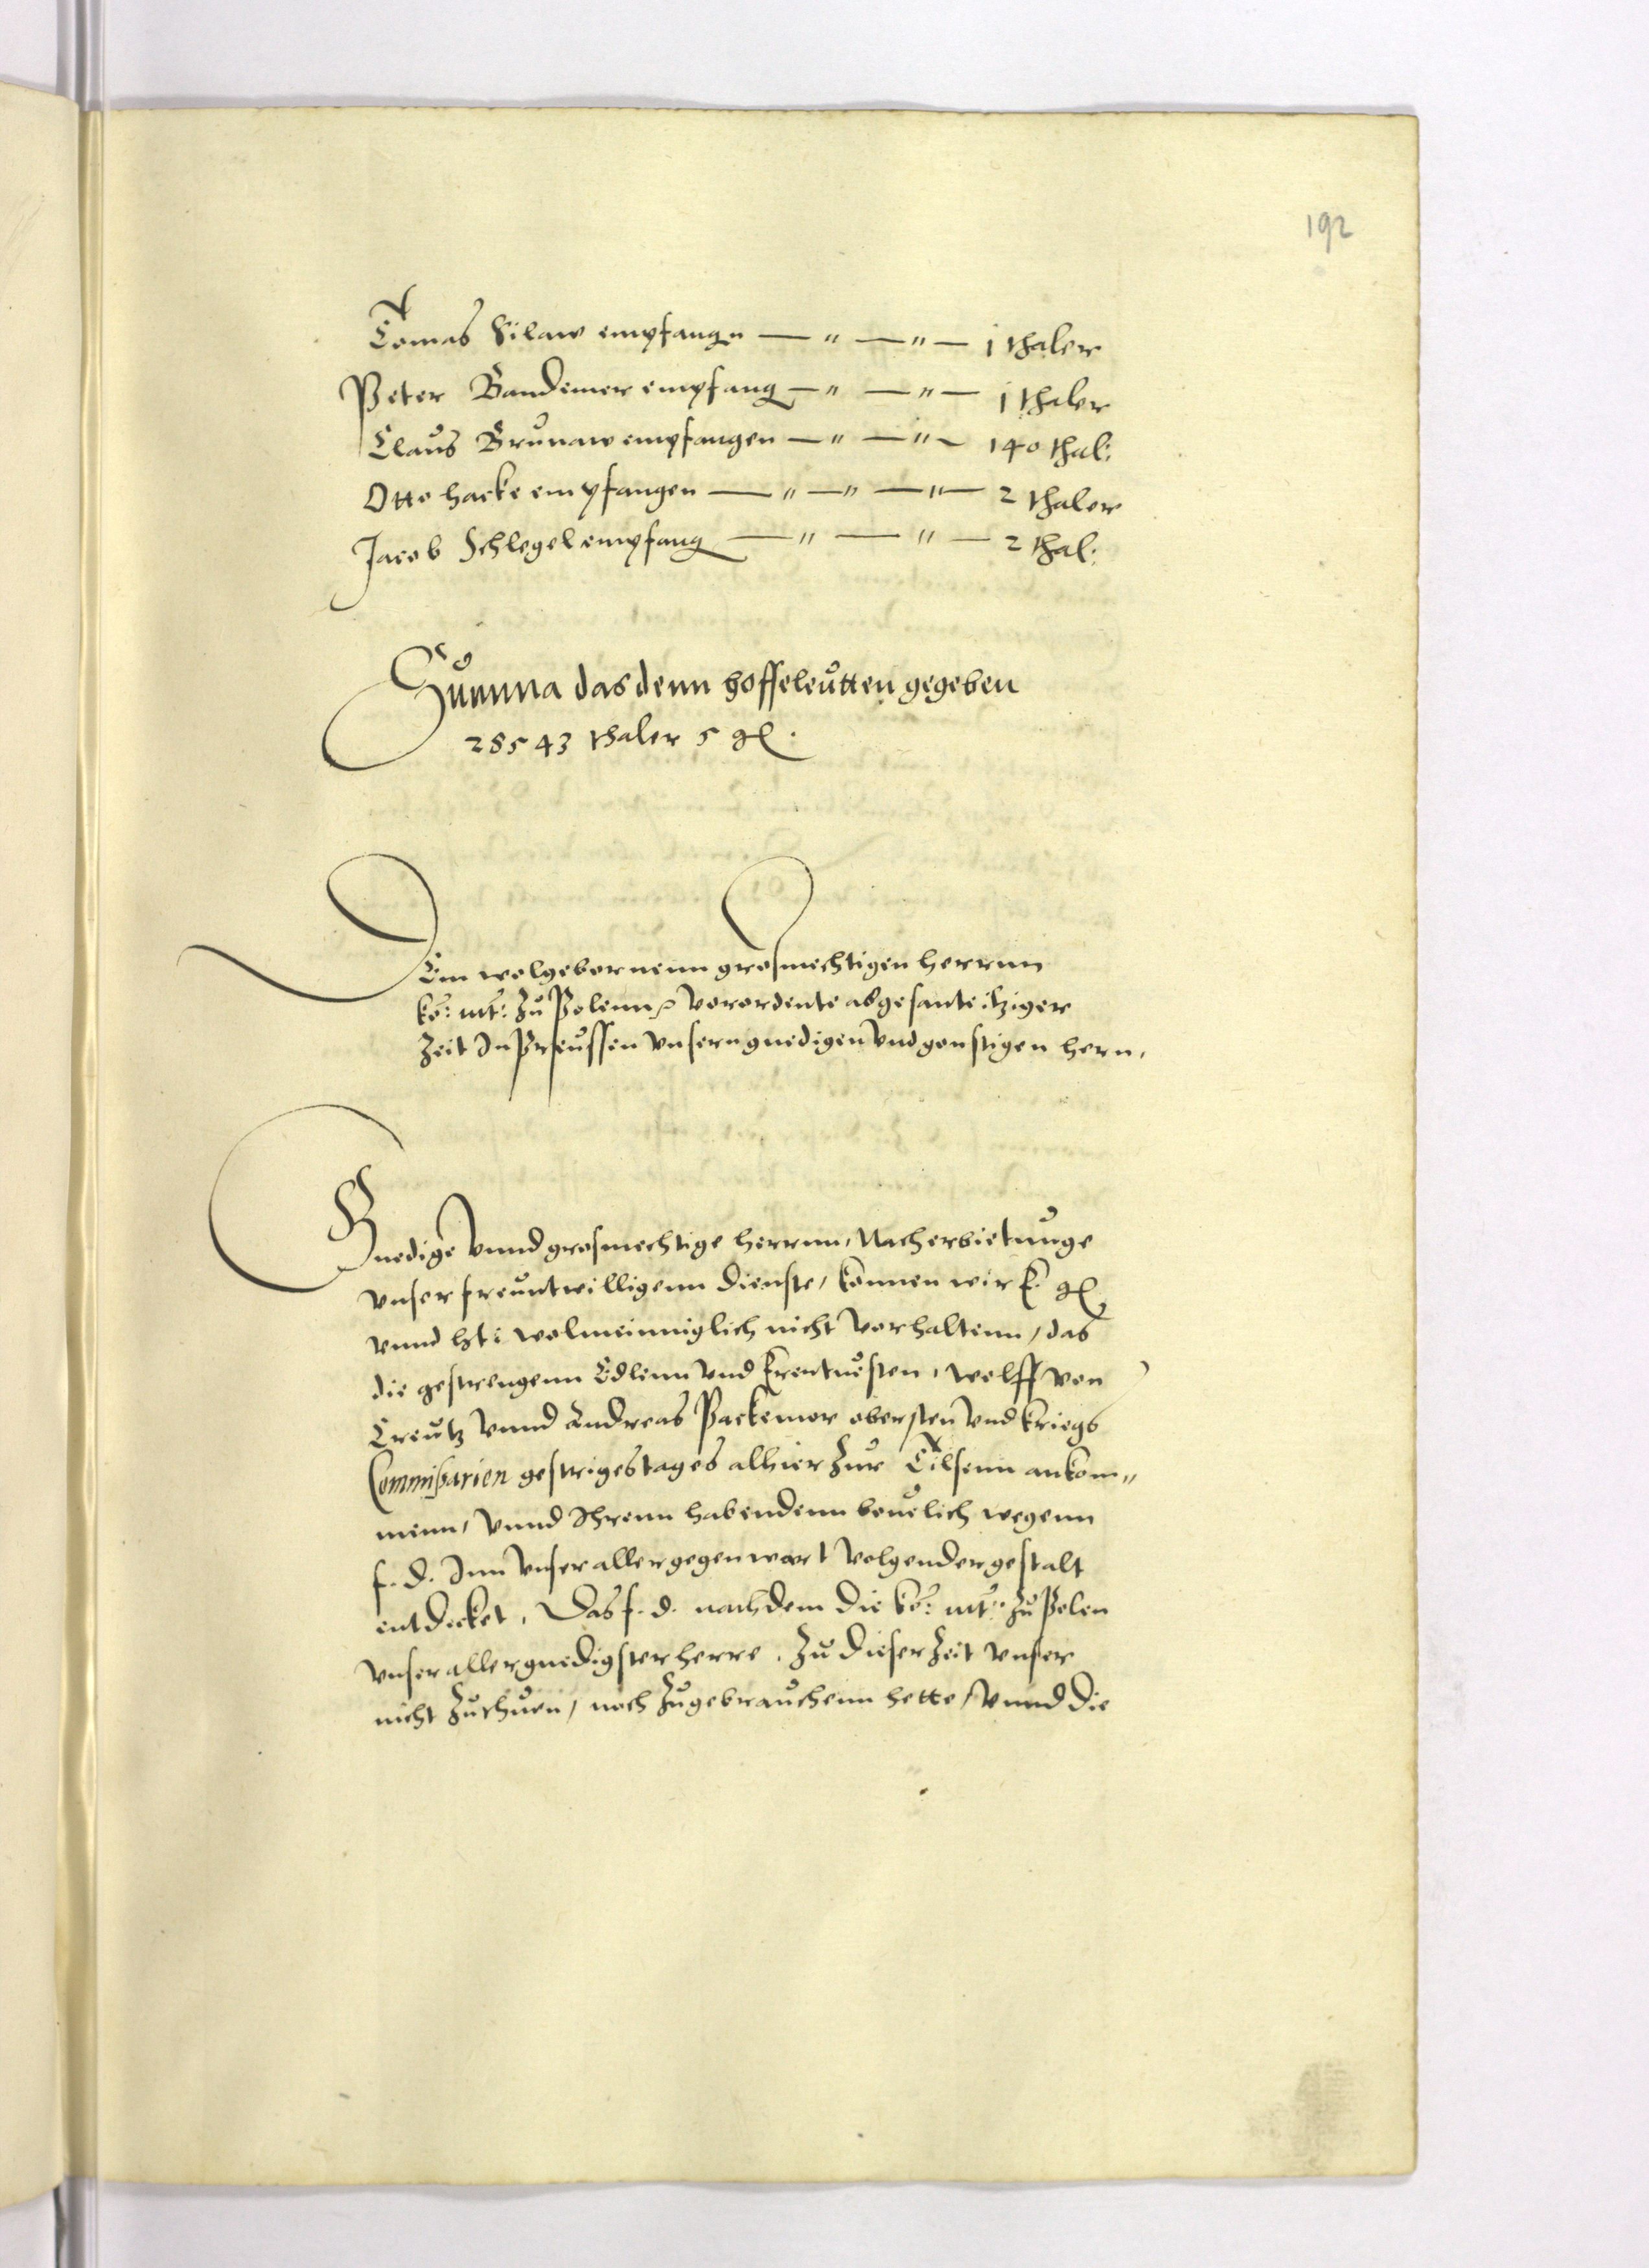 192
Tomas Silaw empfangn — " — " — 1 thaler
Peter Bandemer empfang — " — " — 1 thaler
Claus Brunaw empfangen — " — " — 140 thal:
Otto hacke empfangen — " — " — " — 2 thaler
Jacob Schlegel empfang — " — " — 2 thal:
Summa das denn hoffeleutten gegeben
28543 thaler 5 gl.
Den wolgebornenn grosmechtigen herrnn
ko: mt: zu Polenn verordente abgesante itziger
zeit In Preussen unsern gnedigen und gonstigen hern,
Gnedige unnd grosmechtige herrnn, Nach erbietunge
unser freuntwilligenn dienste, konnen wir E. gl.
unnd ht: wolmeinniglich nicht vorhaltenn, das
die gestrengenn Edlenn und Erentuesten, wolff von
Creutz unnd Andreas Packemor obersten und kriegs
Commissarien gestriges tages alhier zur Tilsenn ankom„
menn, unnd Ihrenn habendenn beuelich wegenn
f. d. Inn unser aller gegenwart volgender gestalt
entdecket, Das f. d. nachdem die ko: mt: zu Polen
unser allergnedigster herre, zu dieser zeit unser
nicht zuthuen, noch zugebrauchenn hette, unnd die